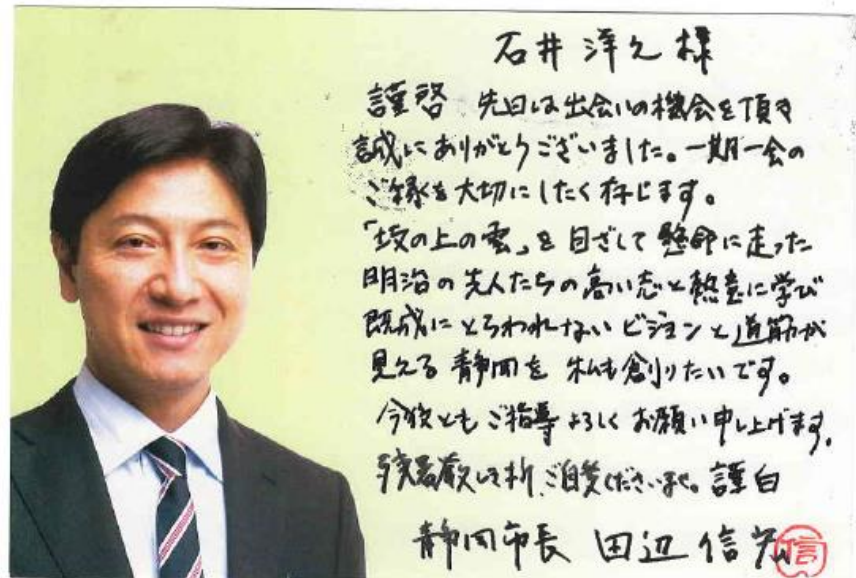 石井洋之様
謹啓 先日は出会いの機会を頂き
誠にありがとうございました。一期一会の
ご縁を大切にしたく存じます。
「坂の上の雲」を目ざして懸命に走った
明治の先人たちの高い志と熱意に学び
既成にとらわれないビジョンと道筋が
見える静岡を私も創りたいです。
今後ともご指導よろしくお願い申し上げます。
残暑厳しき折、ご自愛くださいませ。謹白
静岡市長 田辺信宏
信